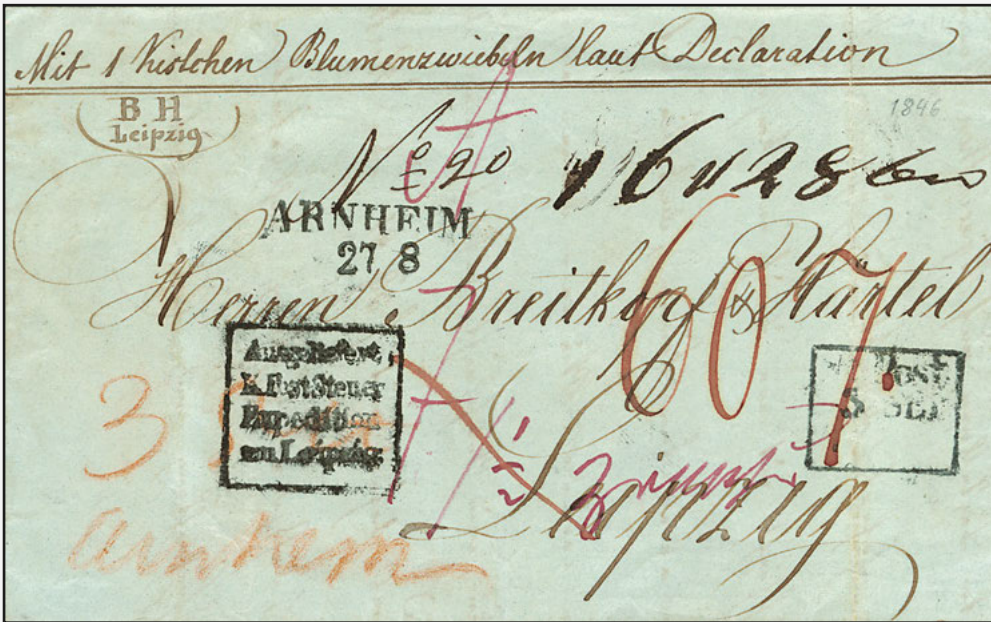 Mit 1 Kistchen Blumenzwiebeln laut Declaration
B H
Leipzig
1846
No 20
ARNHEIM
27 8
Herren Breitkopf & Härtel
607.
Ausgeliefert,
k. Post Steuer
Expedition
zu Leipzig
Post
3
Leipzig
Arnhem